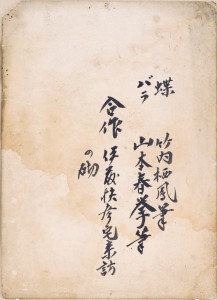 蝶 竹内栖鳳筆
バラ 山木春挙筆
合作 伊藤快彦宅来訪
の砌